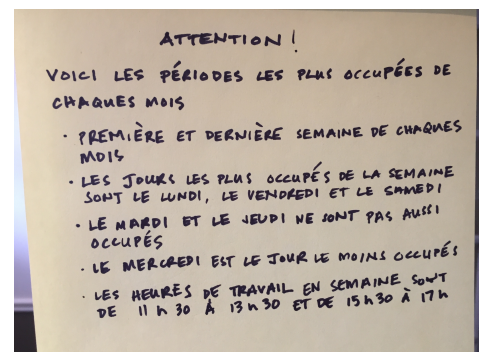 ATTENTION !
VOICI LES PÉRIODES LES PLUS OCCUPÉES DE
CHAQUES MOIS
· PREMIÈRE ET DERNIÈRE SEMAINE DE CHAQUES
MOIS
· LES JOURS LES PLUS OCCUPÉS DE LA SEMAINE
SONT LE LUNDI, LE VENDREDI ET LE SAMEDI
· LE MARDI ET LE JEUDI NE SONT PAS AUSSI
OCCUPÉS
· LE MERCREDI EST LE JOUR LE MOINS OCCUPÉS
· LES HEURES DE TRAVAIL EN SEMAINE SONT
DE 11 h 30 À 13 h 30 ET DE 15 h 30 À 17 h